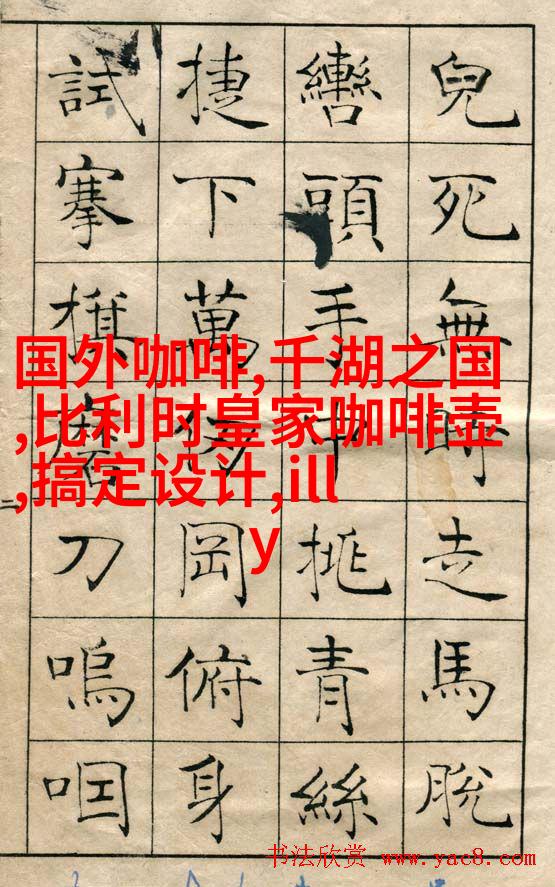 兒死無時走馬脫
轡頭手中挑青絲
捷下萬仞岡俯身
試搴旗磨刀嗚咽
国外咖啡,千湖之国
,比利时皇家咖啡壶
,搞定设计,ill
y
书法欣赏 www.yac8.com